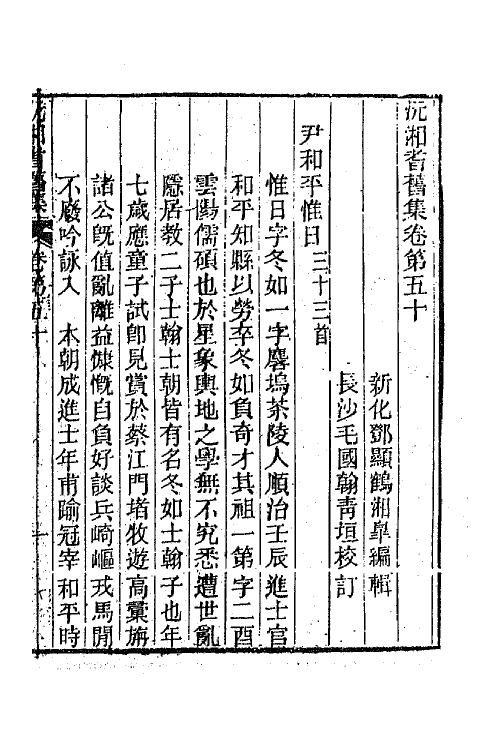 沅湘耆舊集卷第五十
新化鄧顯鶴湘臯編輯
長沙毛國翰靑垣校訂
尹和平惟日三十三首
惟日字冬如一字麐塢茶陵人順治壬辰進士官
和平知縣以勞卒冬如負奇才其祖一第字二酉
雲陽儒碩也於星象輿地之學無不究悉遭世亂
隱居敎二子士翰士朝皆有名冬如士翰子也年
七歲應童子試卽見賞於蔡江門堵牧遊高彙旃
諸公旣值亂離益慷慨自負好談兵崎嶇戎馬閒
不廢吟詠入 本朝成進士年甫踰冠宰和平時
沅湘耆舊集 卷第五十